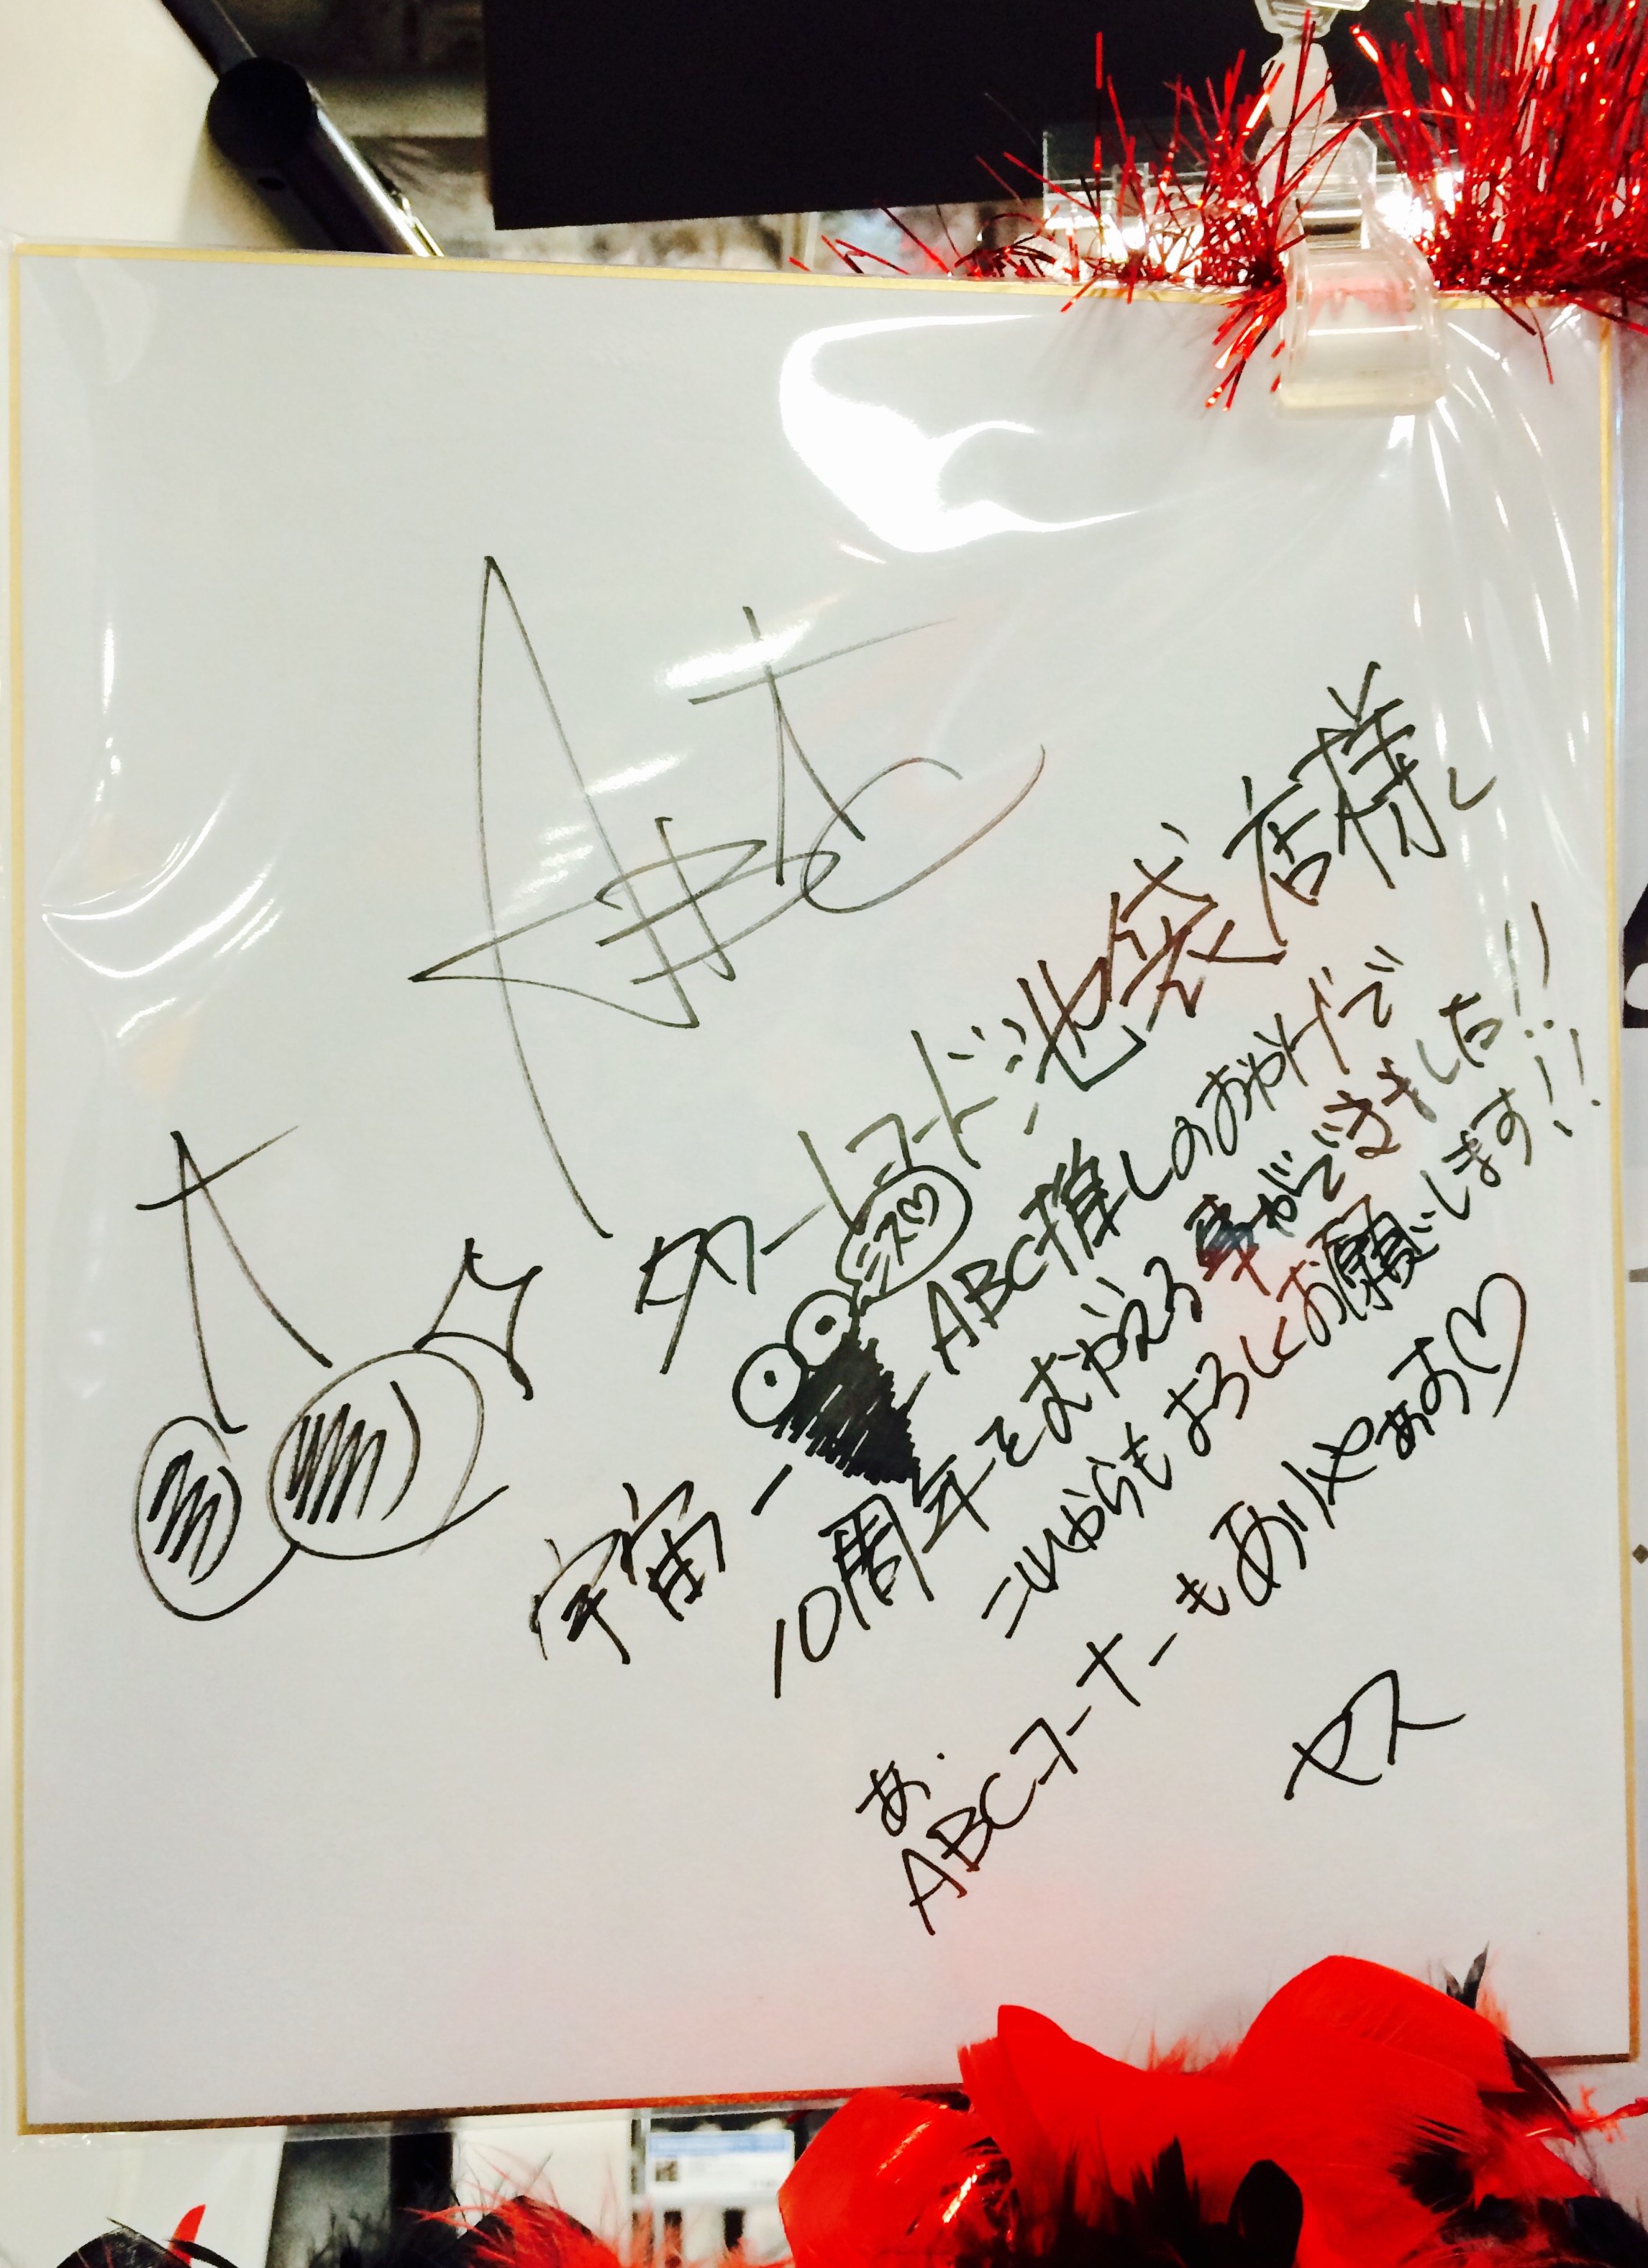 タワーレコード池袋店様へ
ミス♡
宇宙一 ABC推しのおかげで
10周年をむかえる事ができました!!
これからもよろしくお願いします!!
あ.
ABCコーナーもありやぁす♡
ヤス